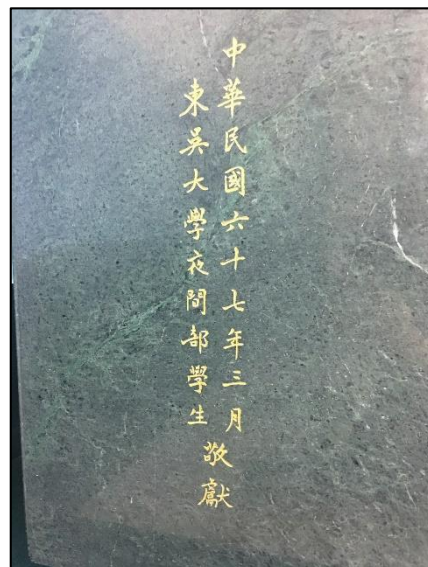 中華民國六十七年三月
東吳大學夜間部學生
敬獻